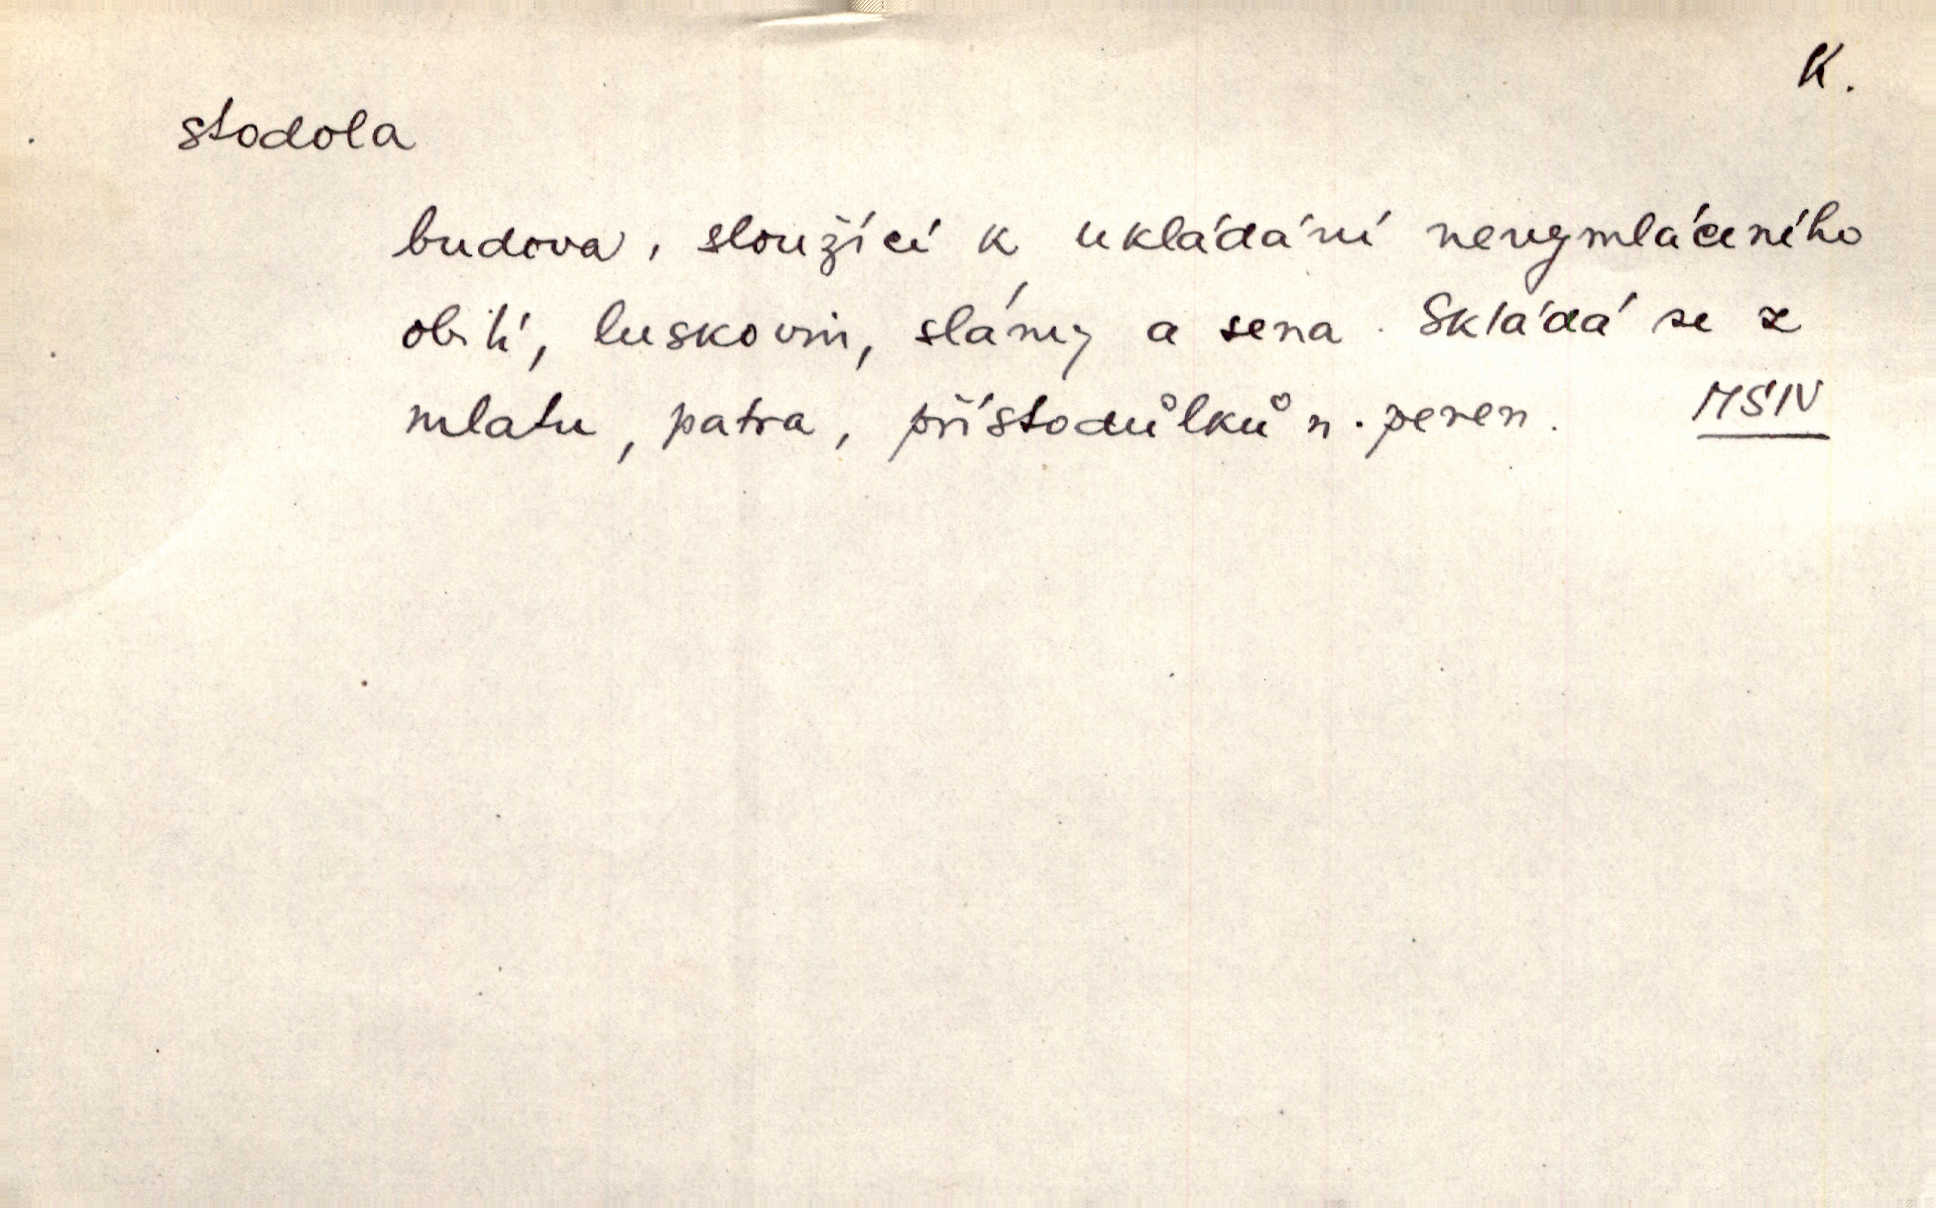 K.
stodola
budova, sloužící k ukládání nevymláceného
obilí, luskovin, slámy a sena. Skládá se z
mlatu, patra, přístodůlků n. peren.
MSN